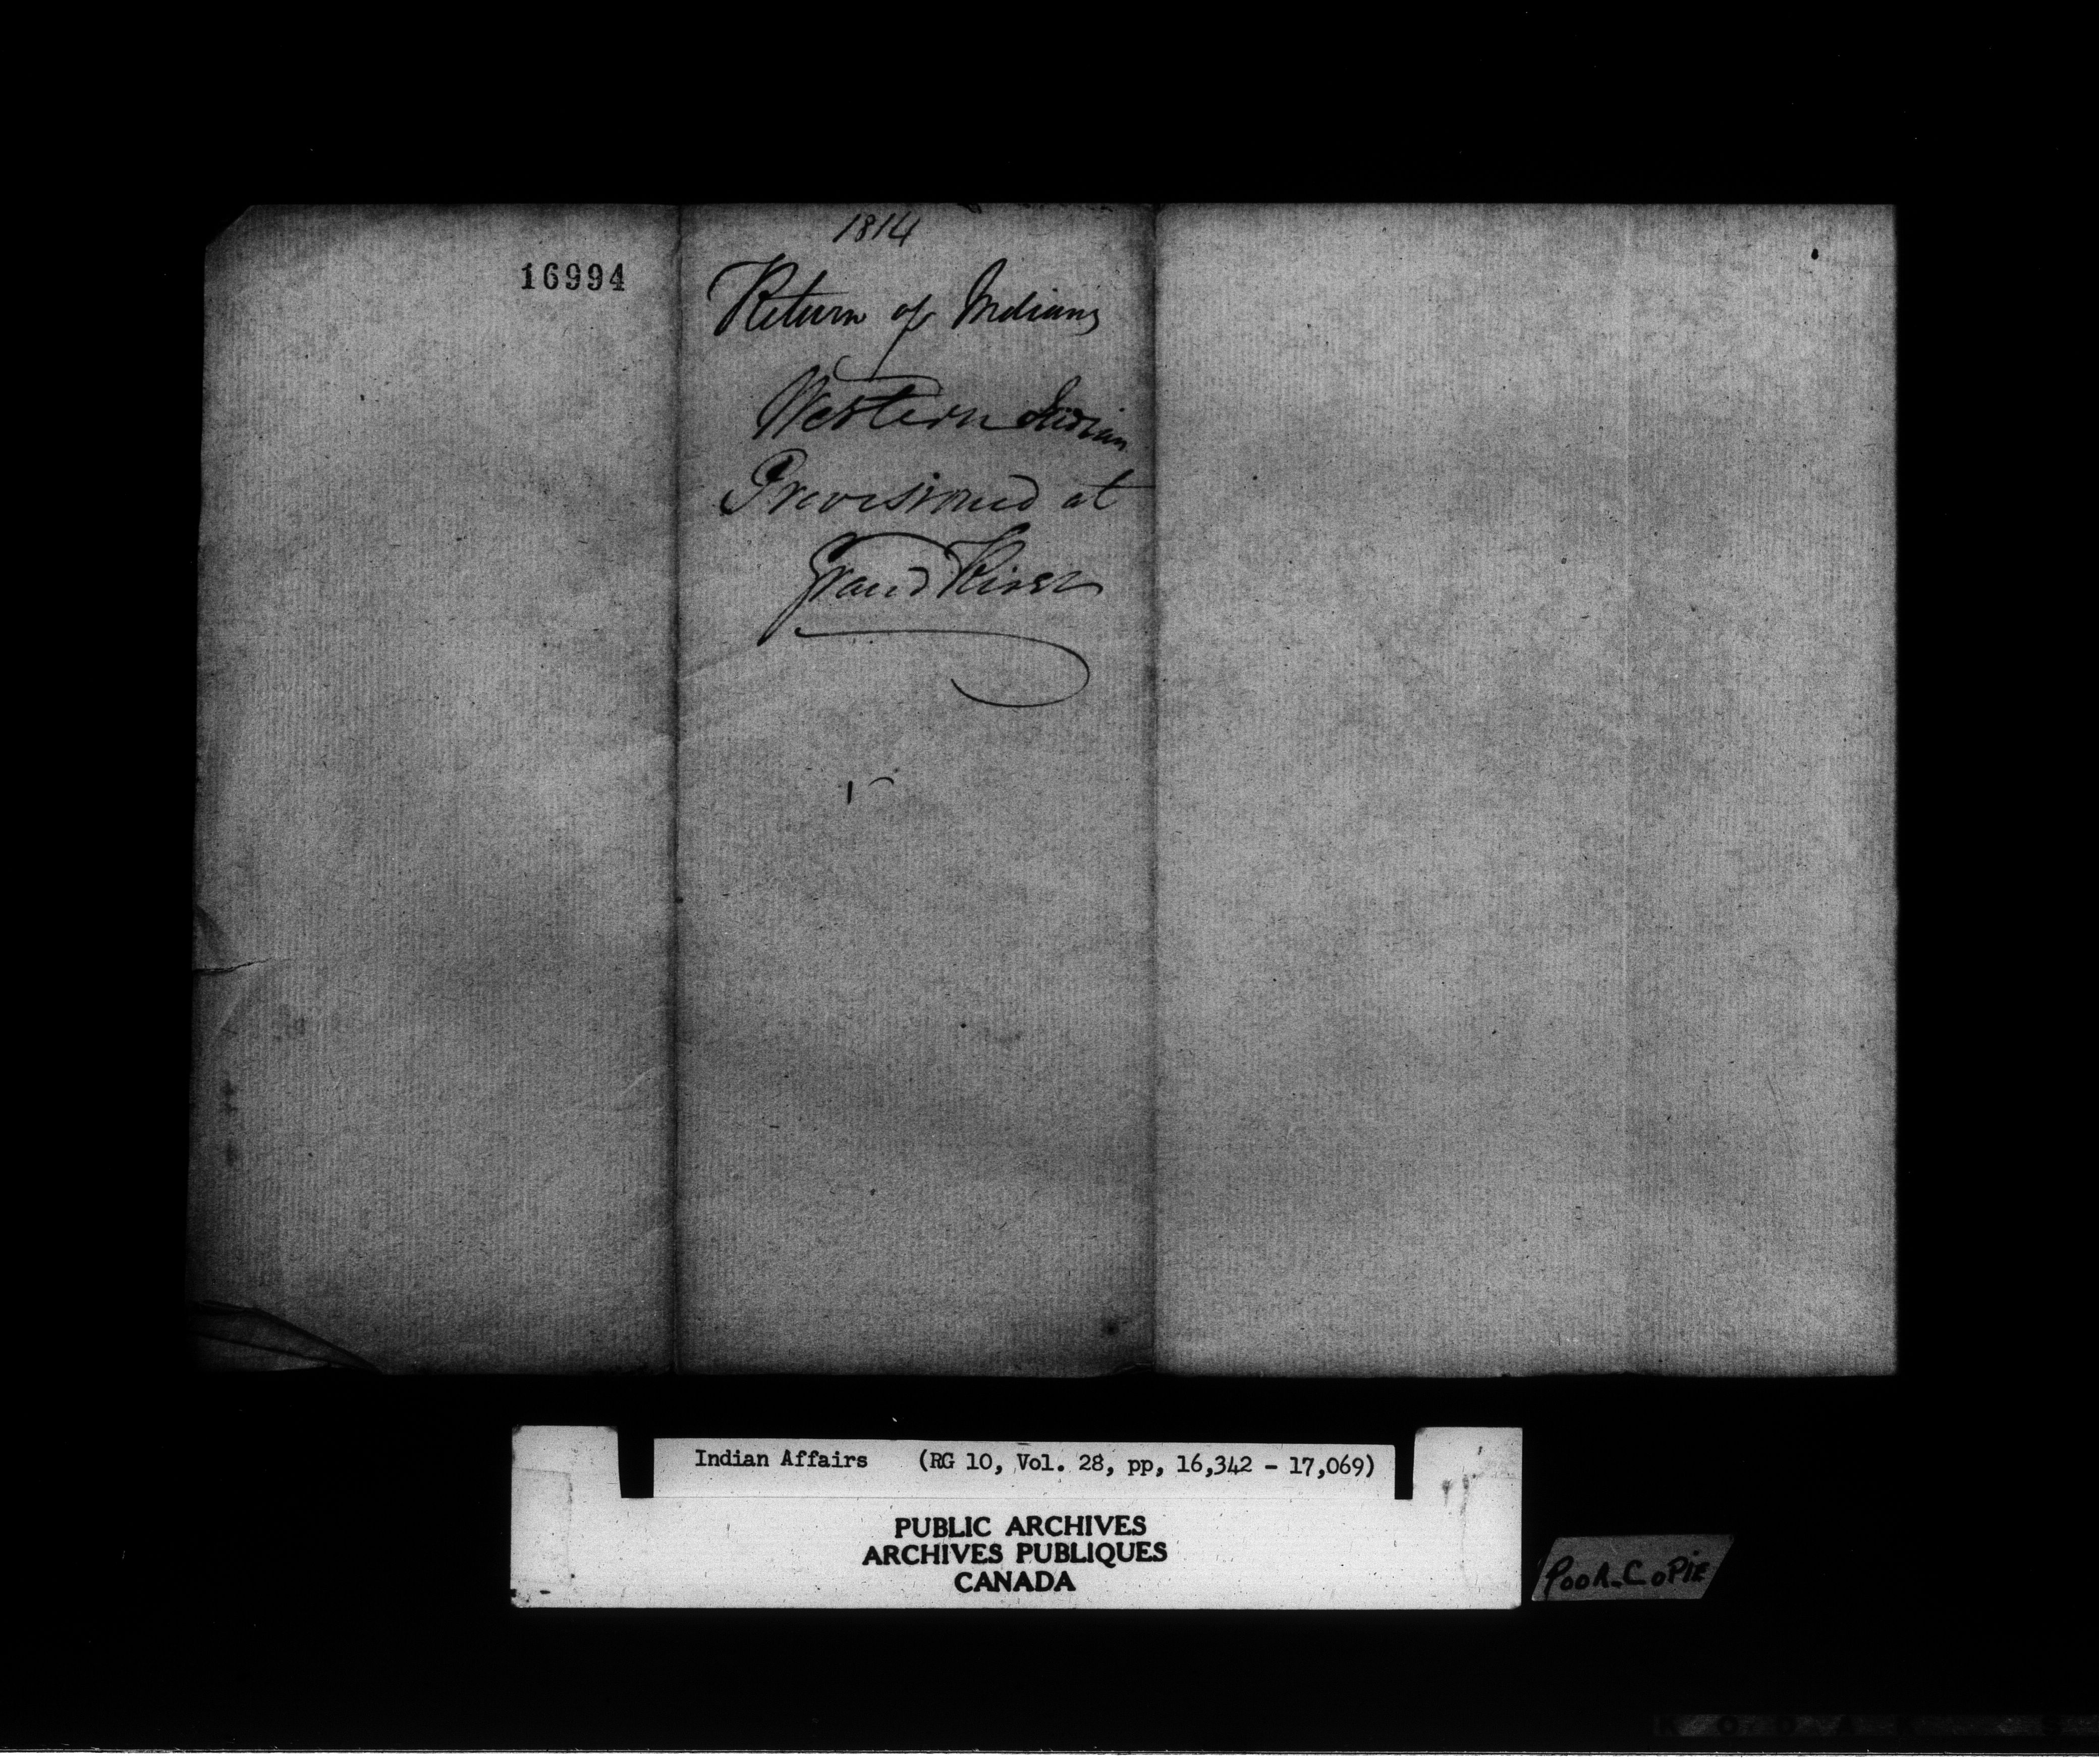 16994
1814
Return of Indians
Western Indian
Provisioned at
Grand River
Indian Affairs (RG 10, Vol. 28, pp, 16,342 - 17,069)
PUBLIC ARCHIVES
ARCHIVES PUBLIQUES
CANADA
POOR-COPIE